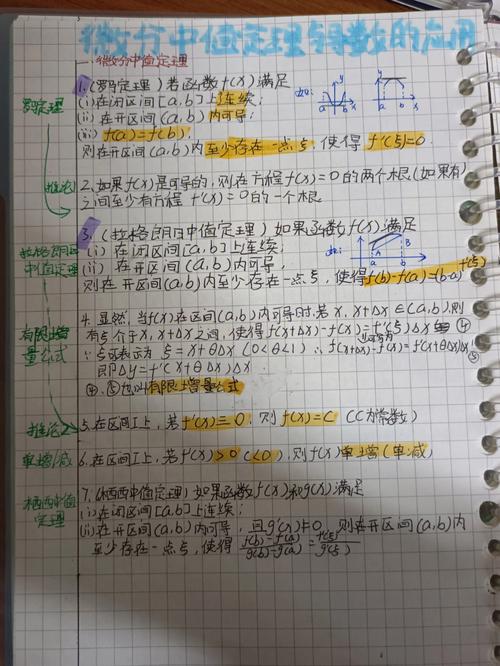 微分中值定理与导数的应用
一.微分中值定理
罗尔定理
1.(罗尔定理)若函数f(x)满足
(i)在闭区间[a,b]上连续;
(ii)在开区间(a,b)内可导;
(iii) f(a)=f(b),
则在开区间(a,b)内至少存在一点ξ,使得 f'(ξ)=0.
推论
2.如果f(x)是可导的,则在方程f(x)=0的两个根(如果有)
之间至少有方程 f'(x)=0的一个根.
拉格朗日
中值定理
3.(拉格朗日中值定理)如果函数f(x)满足
(i)在闭区间[a,b]上连续;
(ii)在开区间(a,b)内可导,
则在开区间(a,b)内至少存在一点ξ,使得f(b)-f(a)=(b-a)f'(ξ)
有限增
量公式
4.显然,当f(x)在区间(a,b)内可导时,若x,x+Δx∈(a,b),则
有ξ介于x,x+Δx之间,使得f(x+Δx)-f(x)=f'(ξ)Δx ④
∵ξ可表示为 ξ=x+θΔx (0<θ<1) ∴f(x+Δx)-f(x)=f'(x+θΔx)Δx
即Δy=f'(x+θΔx)Δx.
④.⑤也叫有限增量公式
推论2
5.在区间I上,若f'(x)≡0,则f(x)=C (C为常数)
单增/减
6.在区间I上,若f'(x)>0(<0),则f(x)单增(单减)
柯西中值
定理
7.(柯西中值定理)如果函数f(x)和g(x)满足
(i)在闭区间[a,b]上连续;
(ii)在开区间(a,b)内可导,且g'(x)≠0,则在开区间(a,b)内
至少存在一点ξ,使得 f(b)-f(a)/g(b)-g(a)=f'(ξ)/g'(ξ)